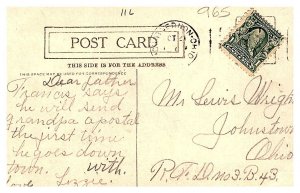 11L
965
POST CARD
THIS SIDE IS FOR THE ADDRESS
THIS SPACE MAY BE USED FOR CORRESPONDENCE
Dear father
Francis says
he will send
grandpa a postal
the first time
he goes down
town. With
love Lizzie.
Mr Lewis Wright
Johnstown
Ohio
R.F.D. No 3. B. 43.